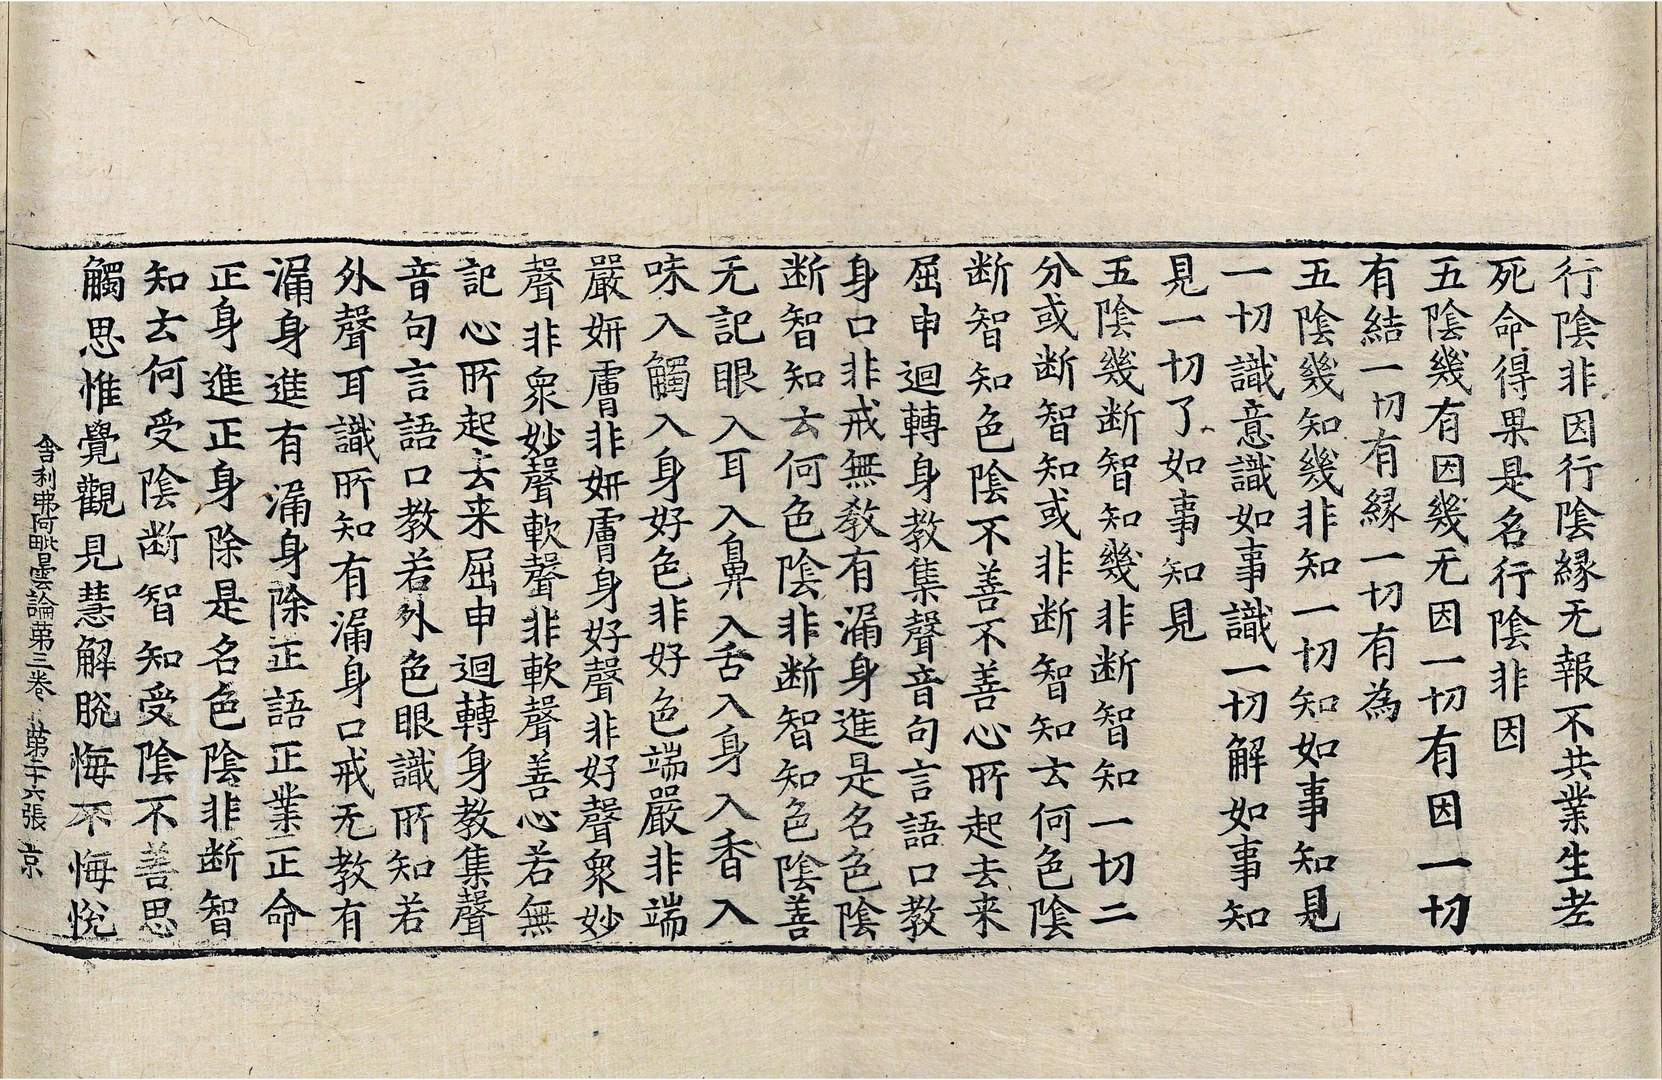 行陰非因行陰縁无報不共業生老
死命得果是名行陰非因
五陰幾有因幾无因一切有因一切
有結一切有縁一切有為
五陰幾知幾非知一切知如事知見
一切識意識如事識一切解如事知
見一切了如事知見
五陰幾断智知幾非断智知一切二
分或断智知或非断智知云何色陰
断智知色陰不善不善心所起去来
屈申迴轉身教集聲音句言語口教
身口非戒無教有漏身進是名色陰
断智知云何色陰非断智知色陰善
无記眼入耳入鼻入舌入身入香入
味入觸入身好色非好色端嚴非端
嚴妍膚非妍膚身好聲非好聲衆妙
聲非衆妙聲軟聲非軟聲善心若無
記心所起去来屈申迴轉身教集聲
音句言語口教若外色眼識所知若
外聲耳識所知有漏身口戒无教有
漏身進有漏身除正語正業正命
正身進正身除是名色陰非断智
知云何受陰断智知受陰不善思
觸思惟覺觀見慧解脫悔不悔悅
舍利弗阿毗曇論第三卷 第二十六張 京